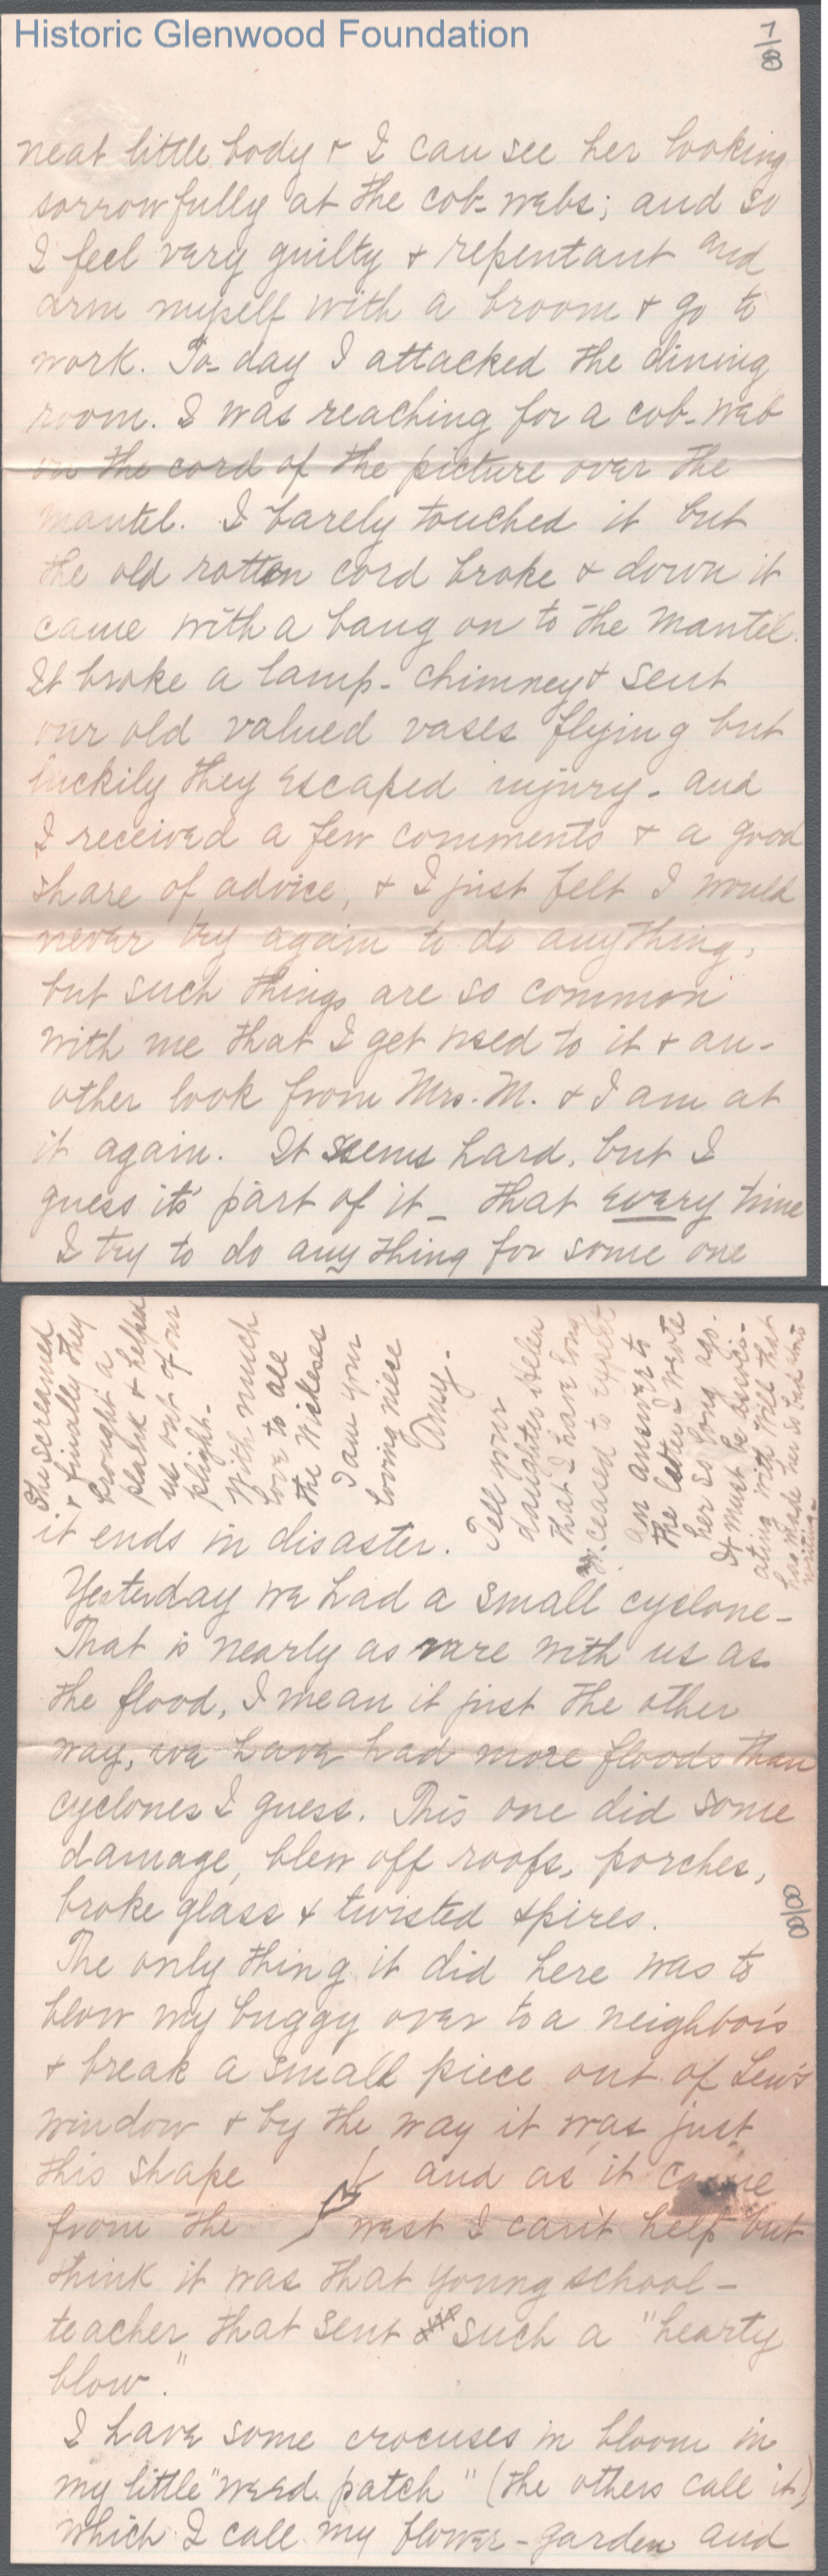 Historic Glenwood Foundation
7/8
neat little body & I can see her looking
sorrowfully at the cob-webs; and so
I feel very guilty & repentant and
arm myself with a broom & go to
work. To-day I attacked the dining
room. I was reaching for a cob-web
on the cord of the picture over the
mantel. I barely touched it but
the old rotten cord broke & down it
came with a bang on to the mantel.
It broke a lamp-chimney & sent
our old valued vases flying but
luckily they escaped injury - and
I received a few comments & a good
share of advice, & I just felt I would
never try again to do anything,
but such things are so common
with me that I get used to it & an-
other look from Mrs. M. & I am at
it again. It seems hard, but I
guess its' part of it - that every time
I try to do any thing for some one
it ends in disaster.
Yesterday we had a small cyclone -
That is nearly as rare with us as
the flood, I mean it just the other
way, we have had more floods than
cyclones I guess. This one did some
damage, blew off roofs, porches,
broke glass & twisted spires.
8/8
The only thing it did here was to
blow my buggy over to a neighbor's
& break a small piece out of Lew's
window & by the way it was just
this shape and as it came
from the west I can't help but
think it was that young school-
teacher that sent such a "hearty
blow."
I have some crocuses in bloom in
my little "weed patch" (the others call it)
which I call my flower-garden and
She screamed
& finally they
brought a
plank & helped
us out of our
plight.
With much
love to all
the Wickeses
I am your
loving niece
Amy.
Tell your
daughter Helen
that I have long
ceased to expect
an answer to
the letter I wrote
her so long ago.
It must be associ-
ating with Will that
has made her so bad about
writing.